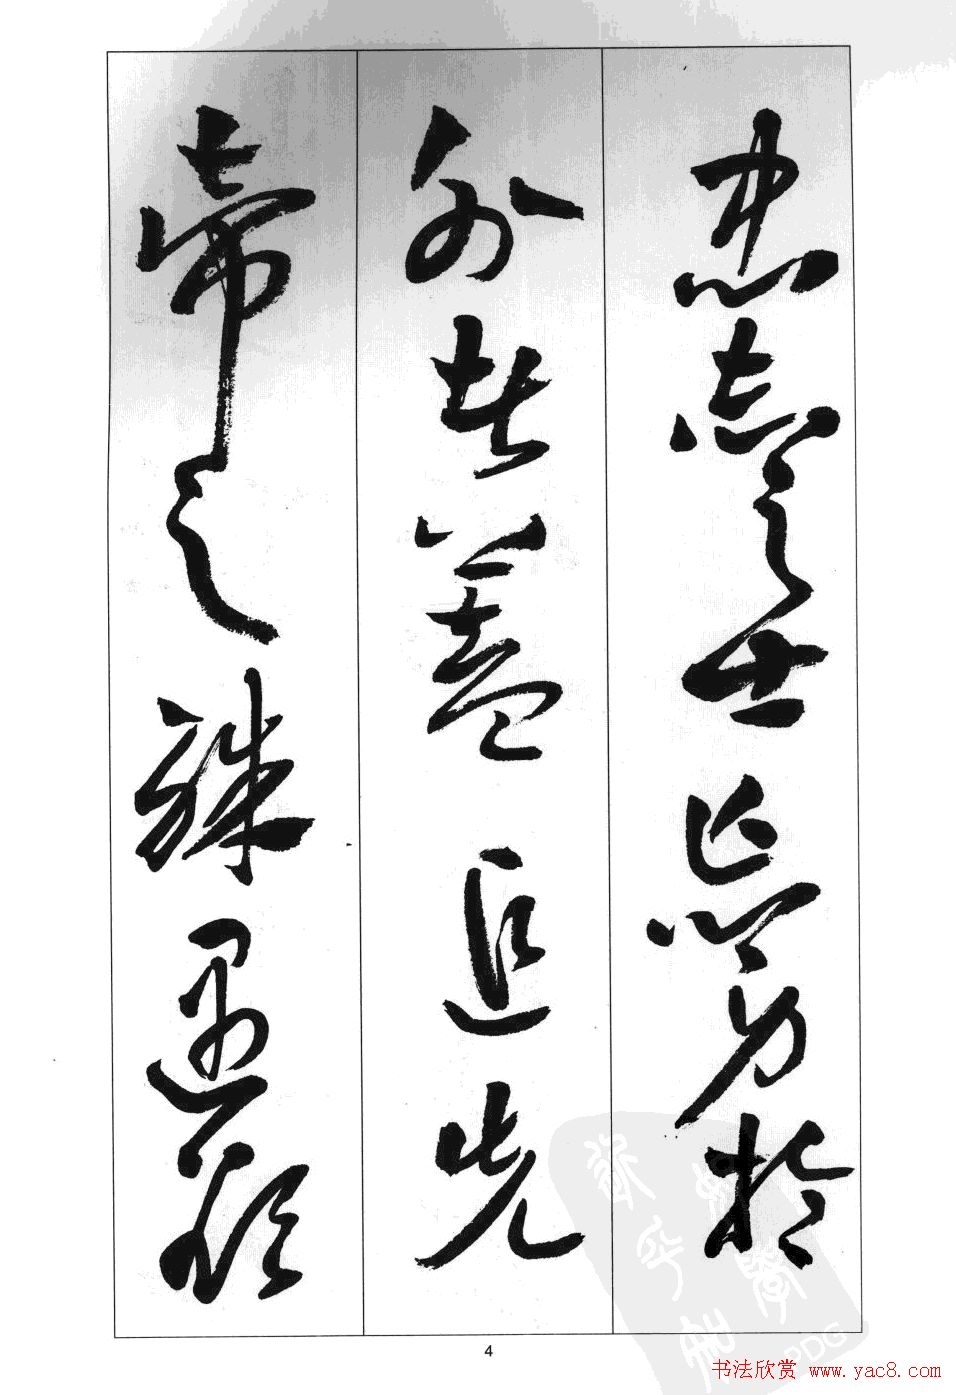 忠志之士忘身於
外者蓋追先
帝之殊遇欲
4
书法欣赏 www.yac8.com
PDG